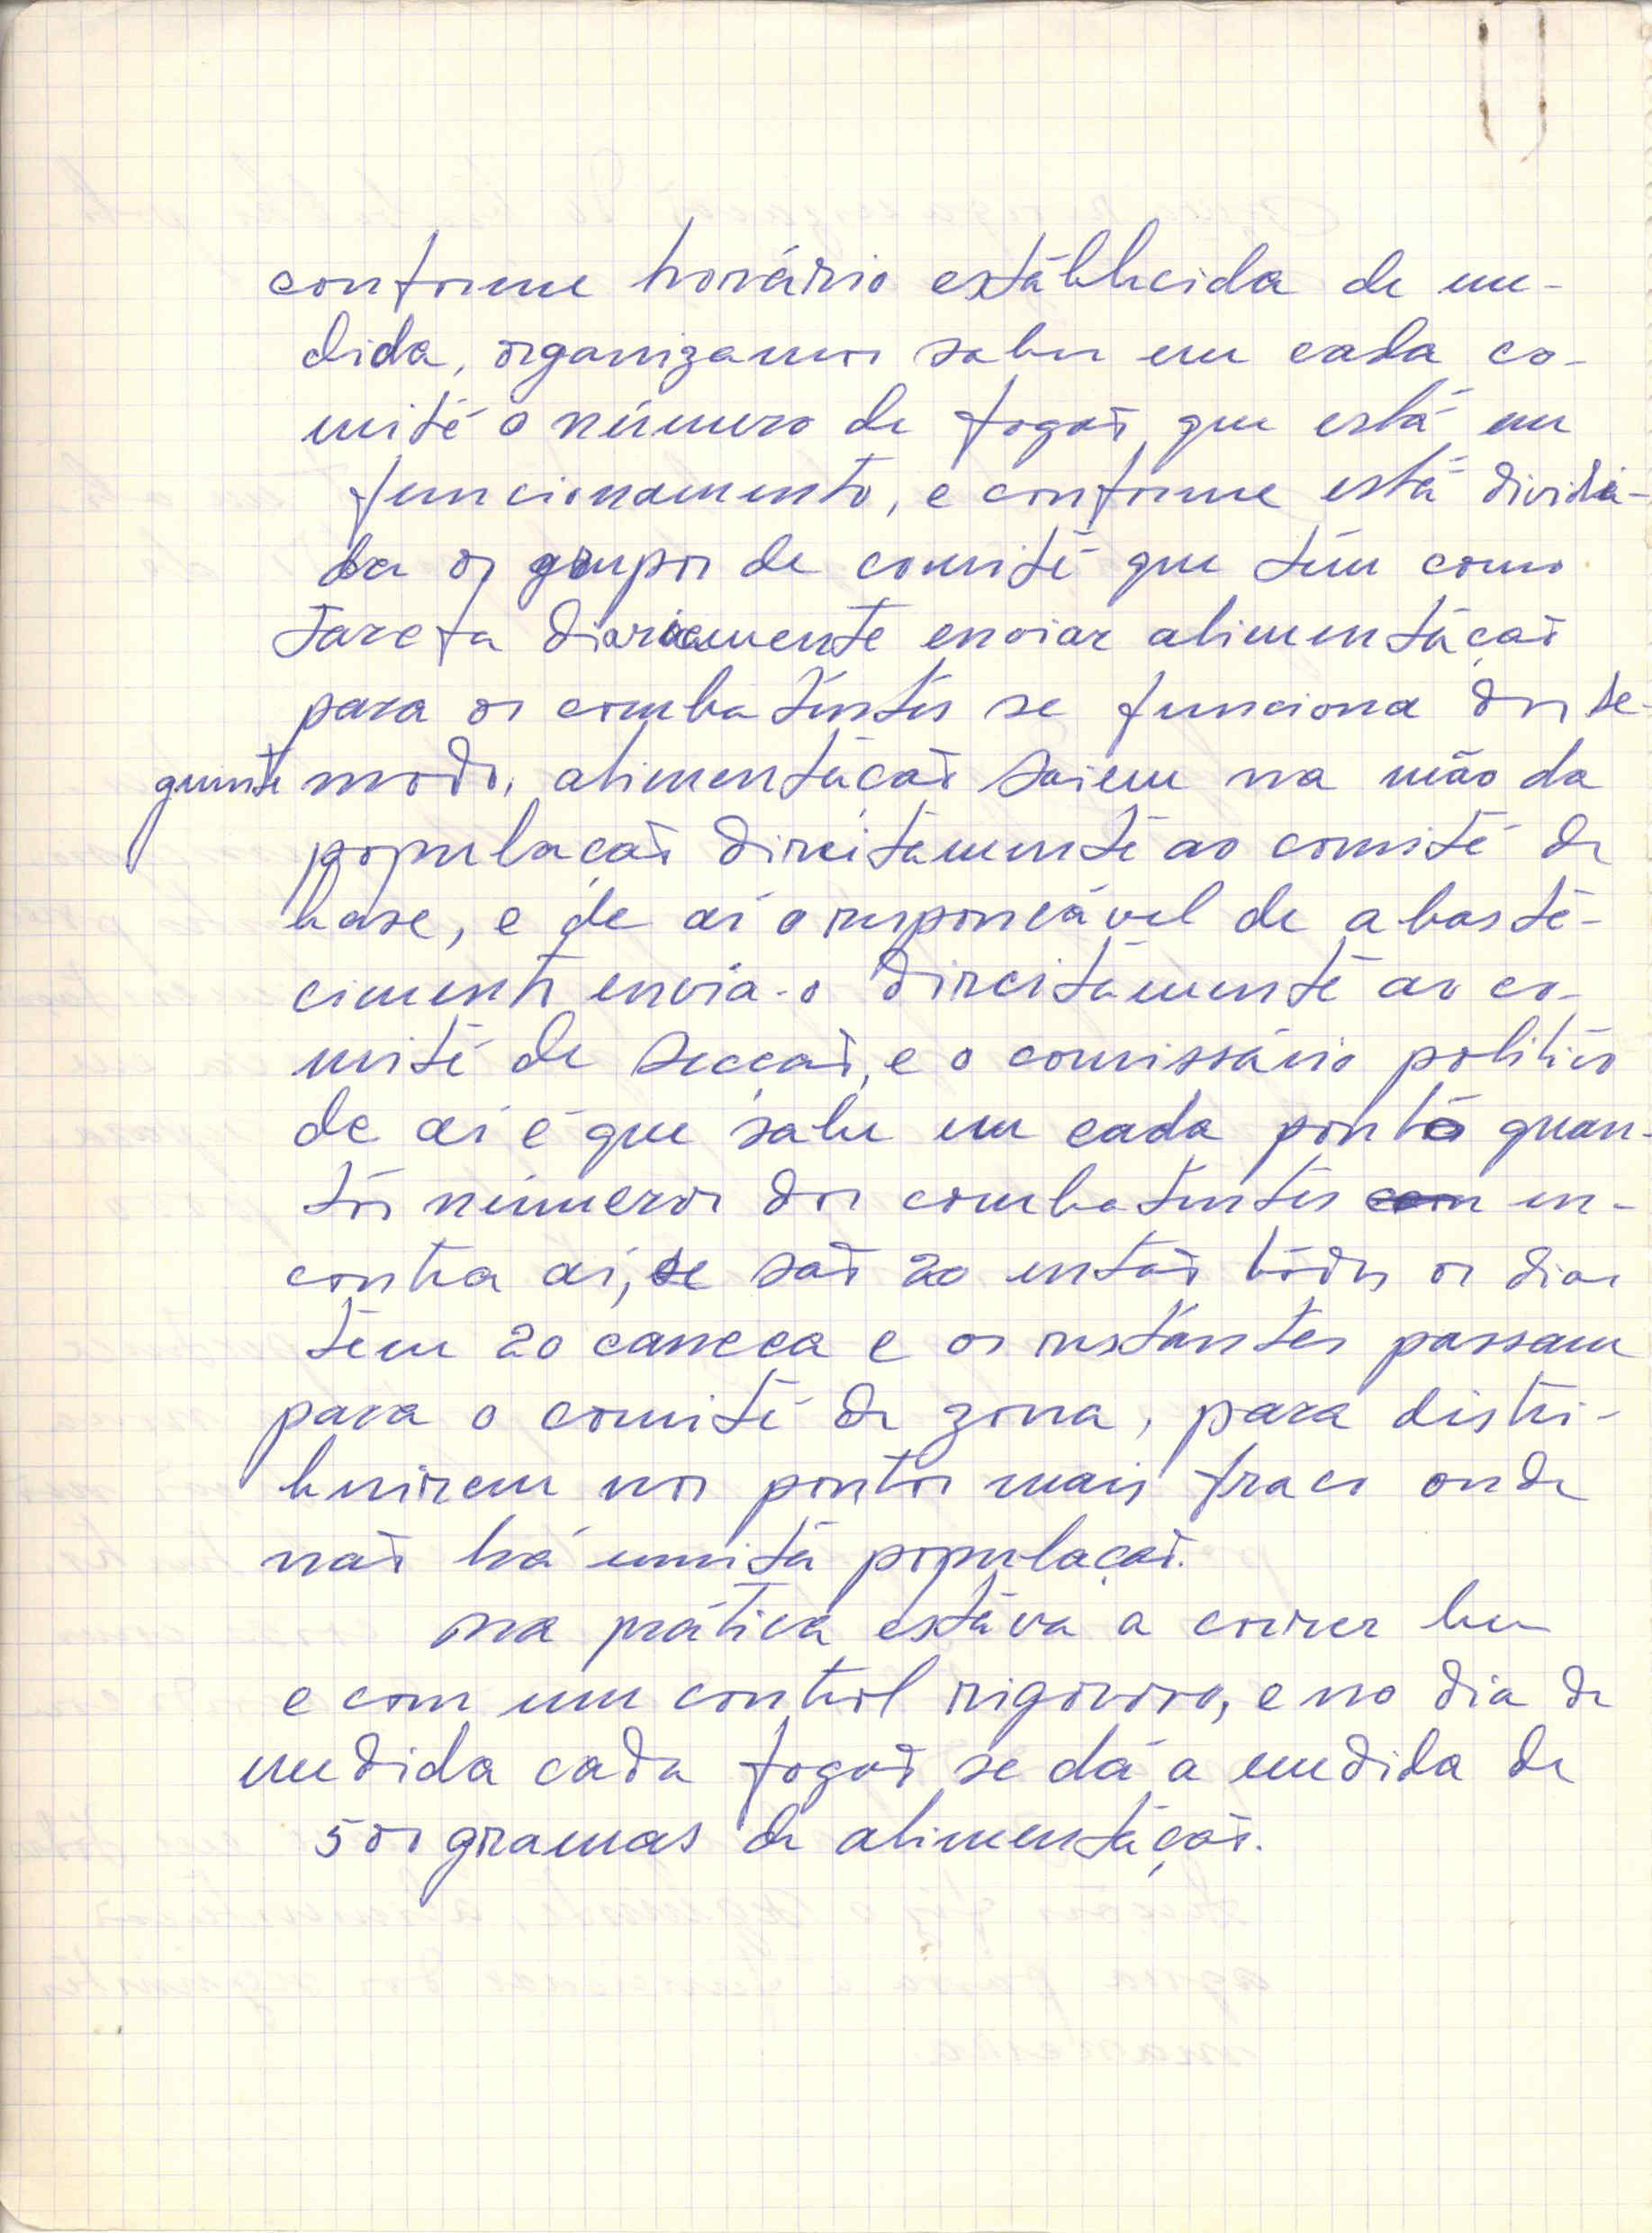 conforme horário estáblecida de me-
dida, organizamos saber em cada co-
mité o número de fogão que está em
funcionamento, e conforme está dividi-
da os grupos de comité que têm como
Tarefa diariamente enviar alimentação
para os combatentes se funciona dos se-
guinte modo, alimentação saiem na mão da
população direitamente ao comité de
base, e de aí o responsável de abaste-
cimento envia-o direitamente ao co-
mité de secção, e o comissário politico
de aí é que sabe em cada ponto quan-
tos números dos combatentes en-
contra aí, se são 20 então todos os dias
tem 20 caneca e os restantes passam
para o comité de zona, para distri-
buirem nos pontos mais fraco onde
não há muita população.
na prática estáva a correr bem
e com um control rigoroso, e no dia de
medida cada fogão se dá a medida de
500 gramas de alimentação.